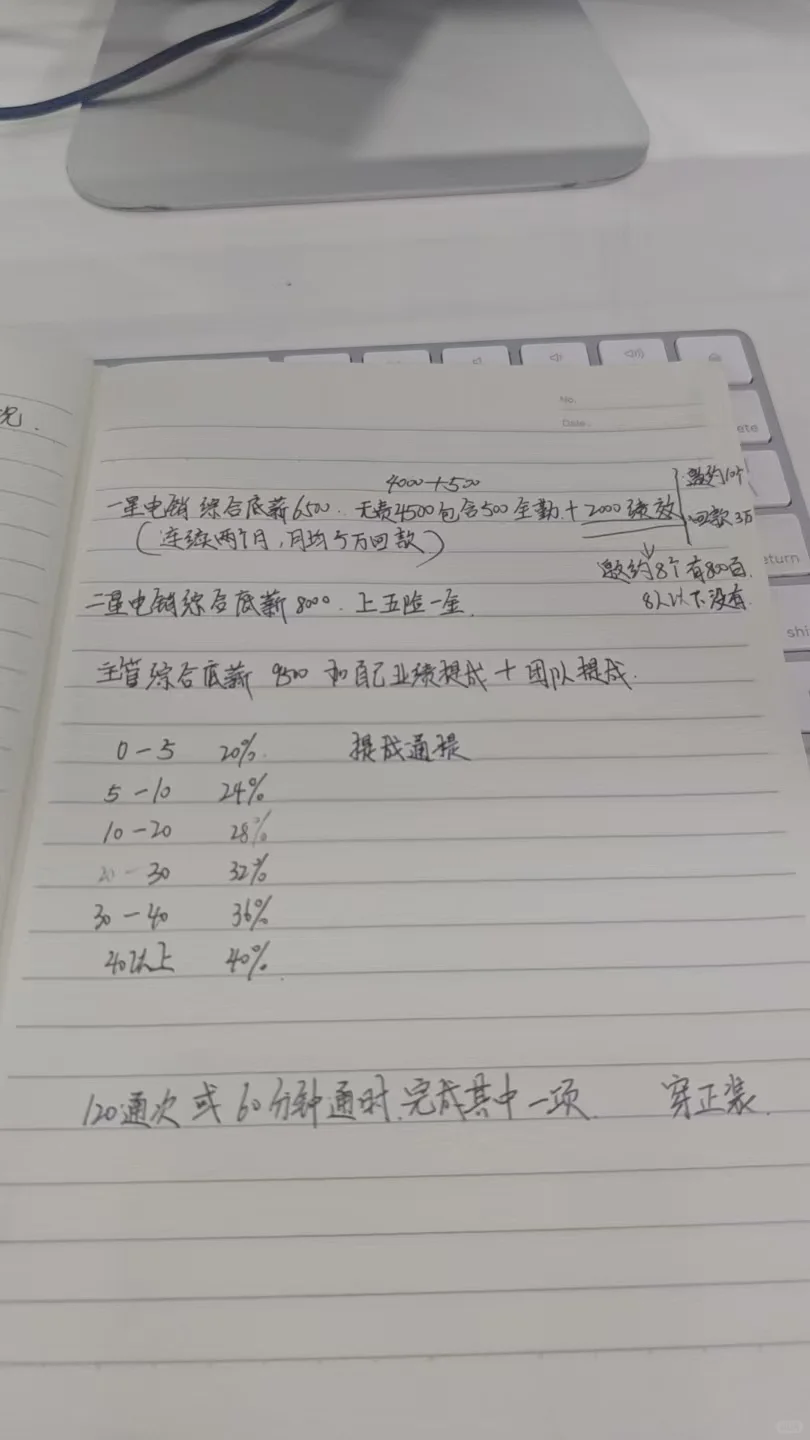 况.
No.
Date.
4000+500
一星电销 综合底薪6500. 无责4500包含500全勤+2000绩效
邀约10个
回款3万
(连续两个月,月均5万回款)
邀约8个有800百.
8人以下没有.
二星电销综合底薪8000. 上五险一金.
主管综合底薪 9500 和自己业绩提成+团队提成.
0-5 20%. 提成通提
5-10 24%
10-20 28%
20-30 32%
30-40 36%
40以上 40%.
120通次 或 60分钟通时.完成其中一项. 穿正装.
ete
return
shi